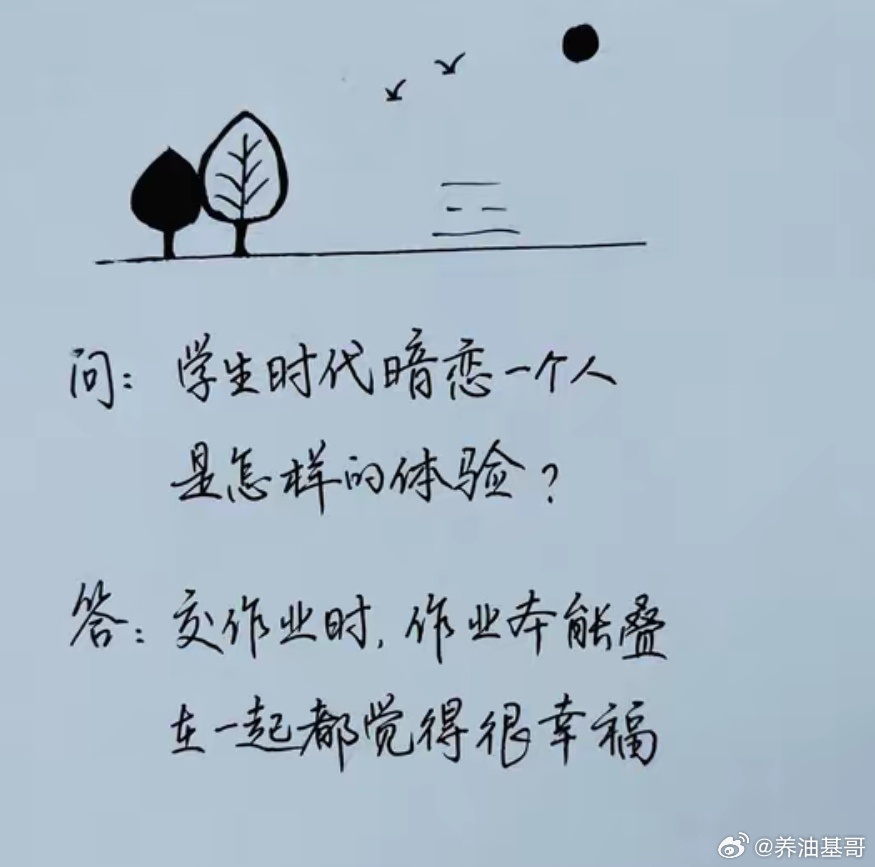 问：学生时代暗恋一个人
是怎样的体验？
答：交作业时，作业本能叠
在一起都觉得很幸福
@养油基哥